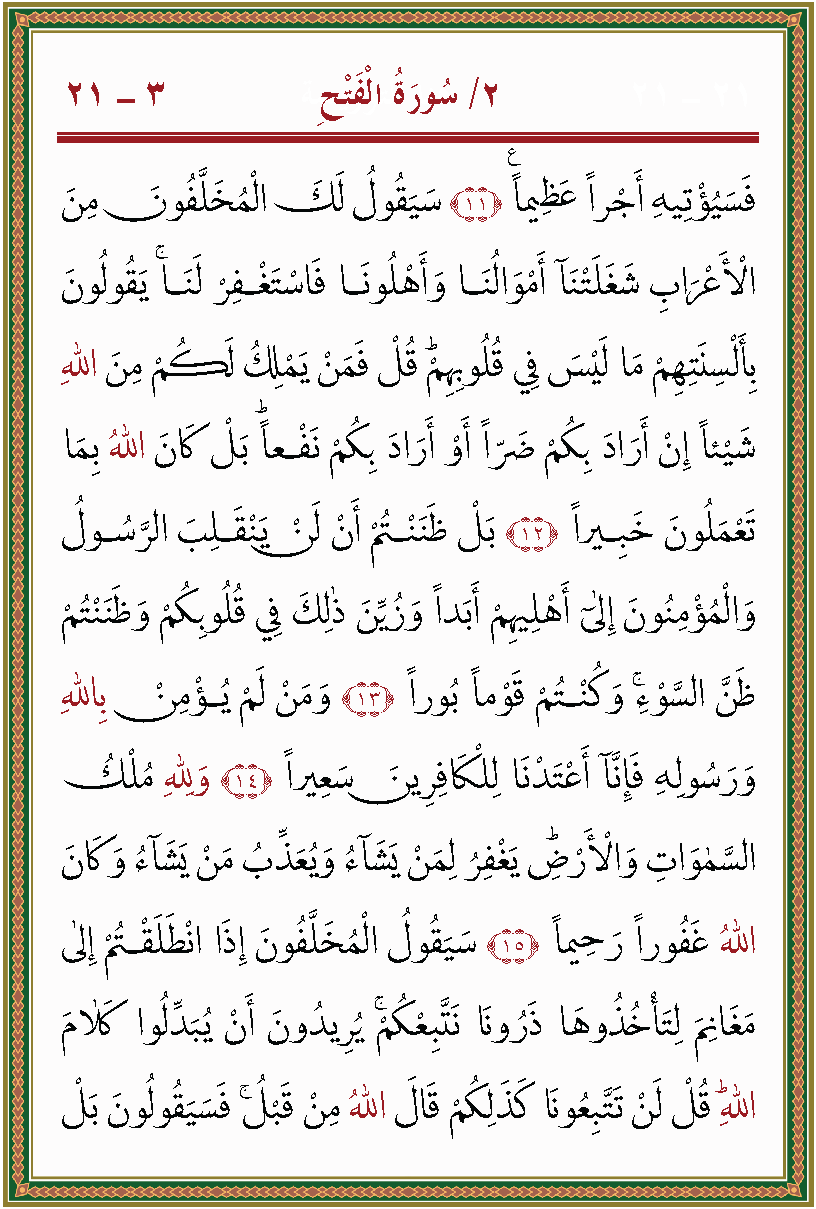 ٢/ سُورَةُ الْفَتْحِ ٣ – ٢١
فَسَيُؤْتِيهِ أَجْراً عَظِيماًۚ ﴿١١﴾ سَيَقُولُ لَكَ الْمُخَلَّفُونَ مِنَ
الْأَعْرَابِ شَغَلَتْنَآ أَمْوَالُنَـا وَأَهْلُونَـا فَاسْتَغْـفِرْ لَنَـاۚ يَقُولُونَ
بِأَلْسِنَتِهِمْ مَا لَيْسَ فِي قُلُوبِهِمْۜ قُلْ فَمَنْ يَمْلِكُ لَكُمْ مِنَ اللهِ
شَيْئاً إِنْ أَرَادَ بِكُمْ ضَرّاً أَوْ أَرَادَ بِكُمْ نَفْـعاًۜ بَلْ كَانَ اللهُ بِمَا
تَعْمَلُونَ خَبِـيراً ﴿١٢﴾ بَلْ ظَنَنْـتُمْ أَنْ لَنْ يَنْقَـلِـبَ الرَّسُـولُ
وَالْمُؤْمِنُونَ إِلٰٓى أَهْلِيهِمْ أَبَداً وَزُيِّنَ ذٰلِكَ فِي قُلُوبِكُمْ وَظَنَنْتُمْ
ظَنَّ السَّوْءِۚ وَكُنْـتُمْ قَوْماً بُوراً ﴿١٣﴾ وَمَنْ لَمْ يُـؤْمِنْ بِاللهِ
وَرَسُولِهِ فَإِنَّآ أَعْتَدْنَا لِلْكَافِرِينَ سَعِيراً ﴿١٤﴾ وَلِلهِ مُلْكُ
السَّمٰوَاتِ وَالْأَرْضِۜ يَغْفِرُ لِمَنْ يَشَآءُ وَيُعَذِّبُ مَنْ يَشَآءُ وَكَانَ
اللهُ غَفُوراً رَحِيماً ﴿١٥﴾ سَيَقُولُ الْمُخَلَّفُونَ إِذَا انْطَلَقْـتُمْ إِلٰى
مَغَانِمَ لِتَأْخُذُوهَا ذَرُونَا نَتَّبِعْكُمْۚ يُرِيدُونَ أَنْ يُبَدِّلُوا كَلَامَ
اللهِۜ قُلْ لَنْ تَتَّبِعُونَا كَذٰلِكُمْ قَالَ اللهُ مِنْ قَبْلُۚ فَسَيَقُولُونَ بَلْ